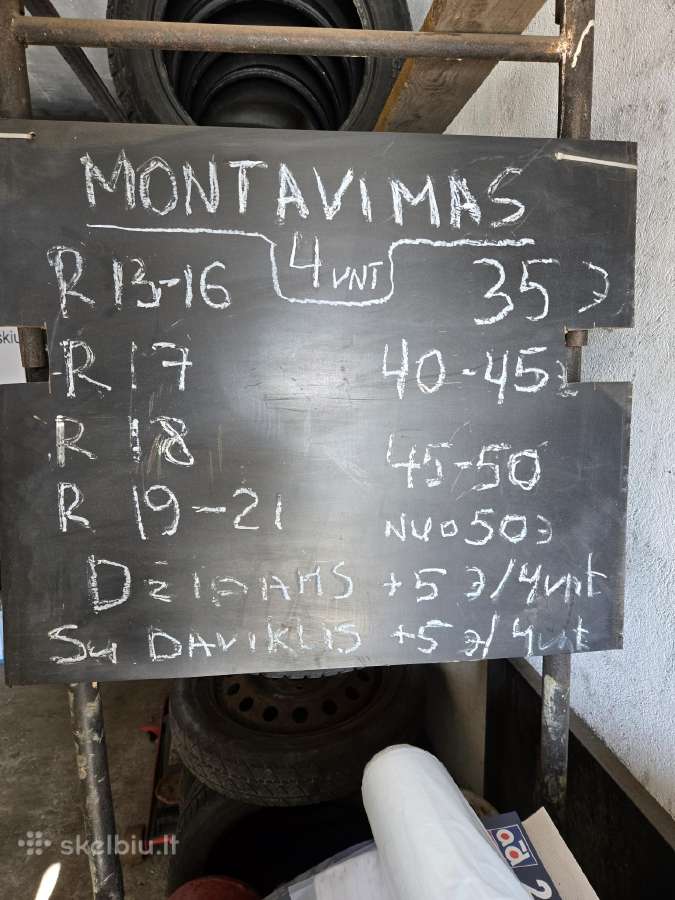 MONTAVIMAS
4 VNT
R 13-16 35 Э
R 17 40-45 Э
R 18 45-50
R 19-21 NUO 50 Э
+5 Э/4vnt
Su DAVIKLIS +5 Э/4vnt
skelbiu.lt